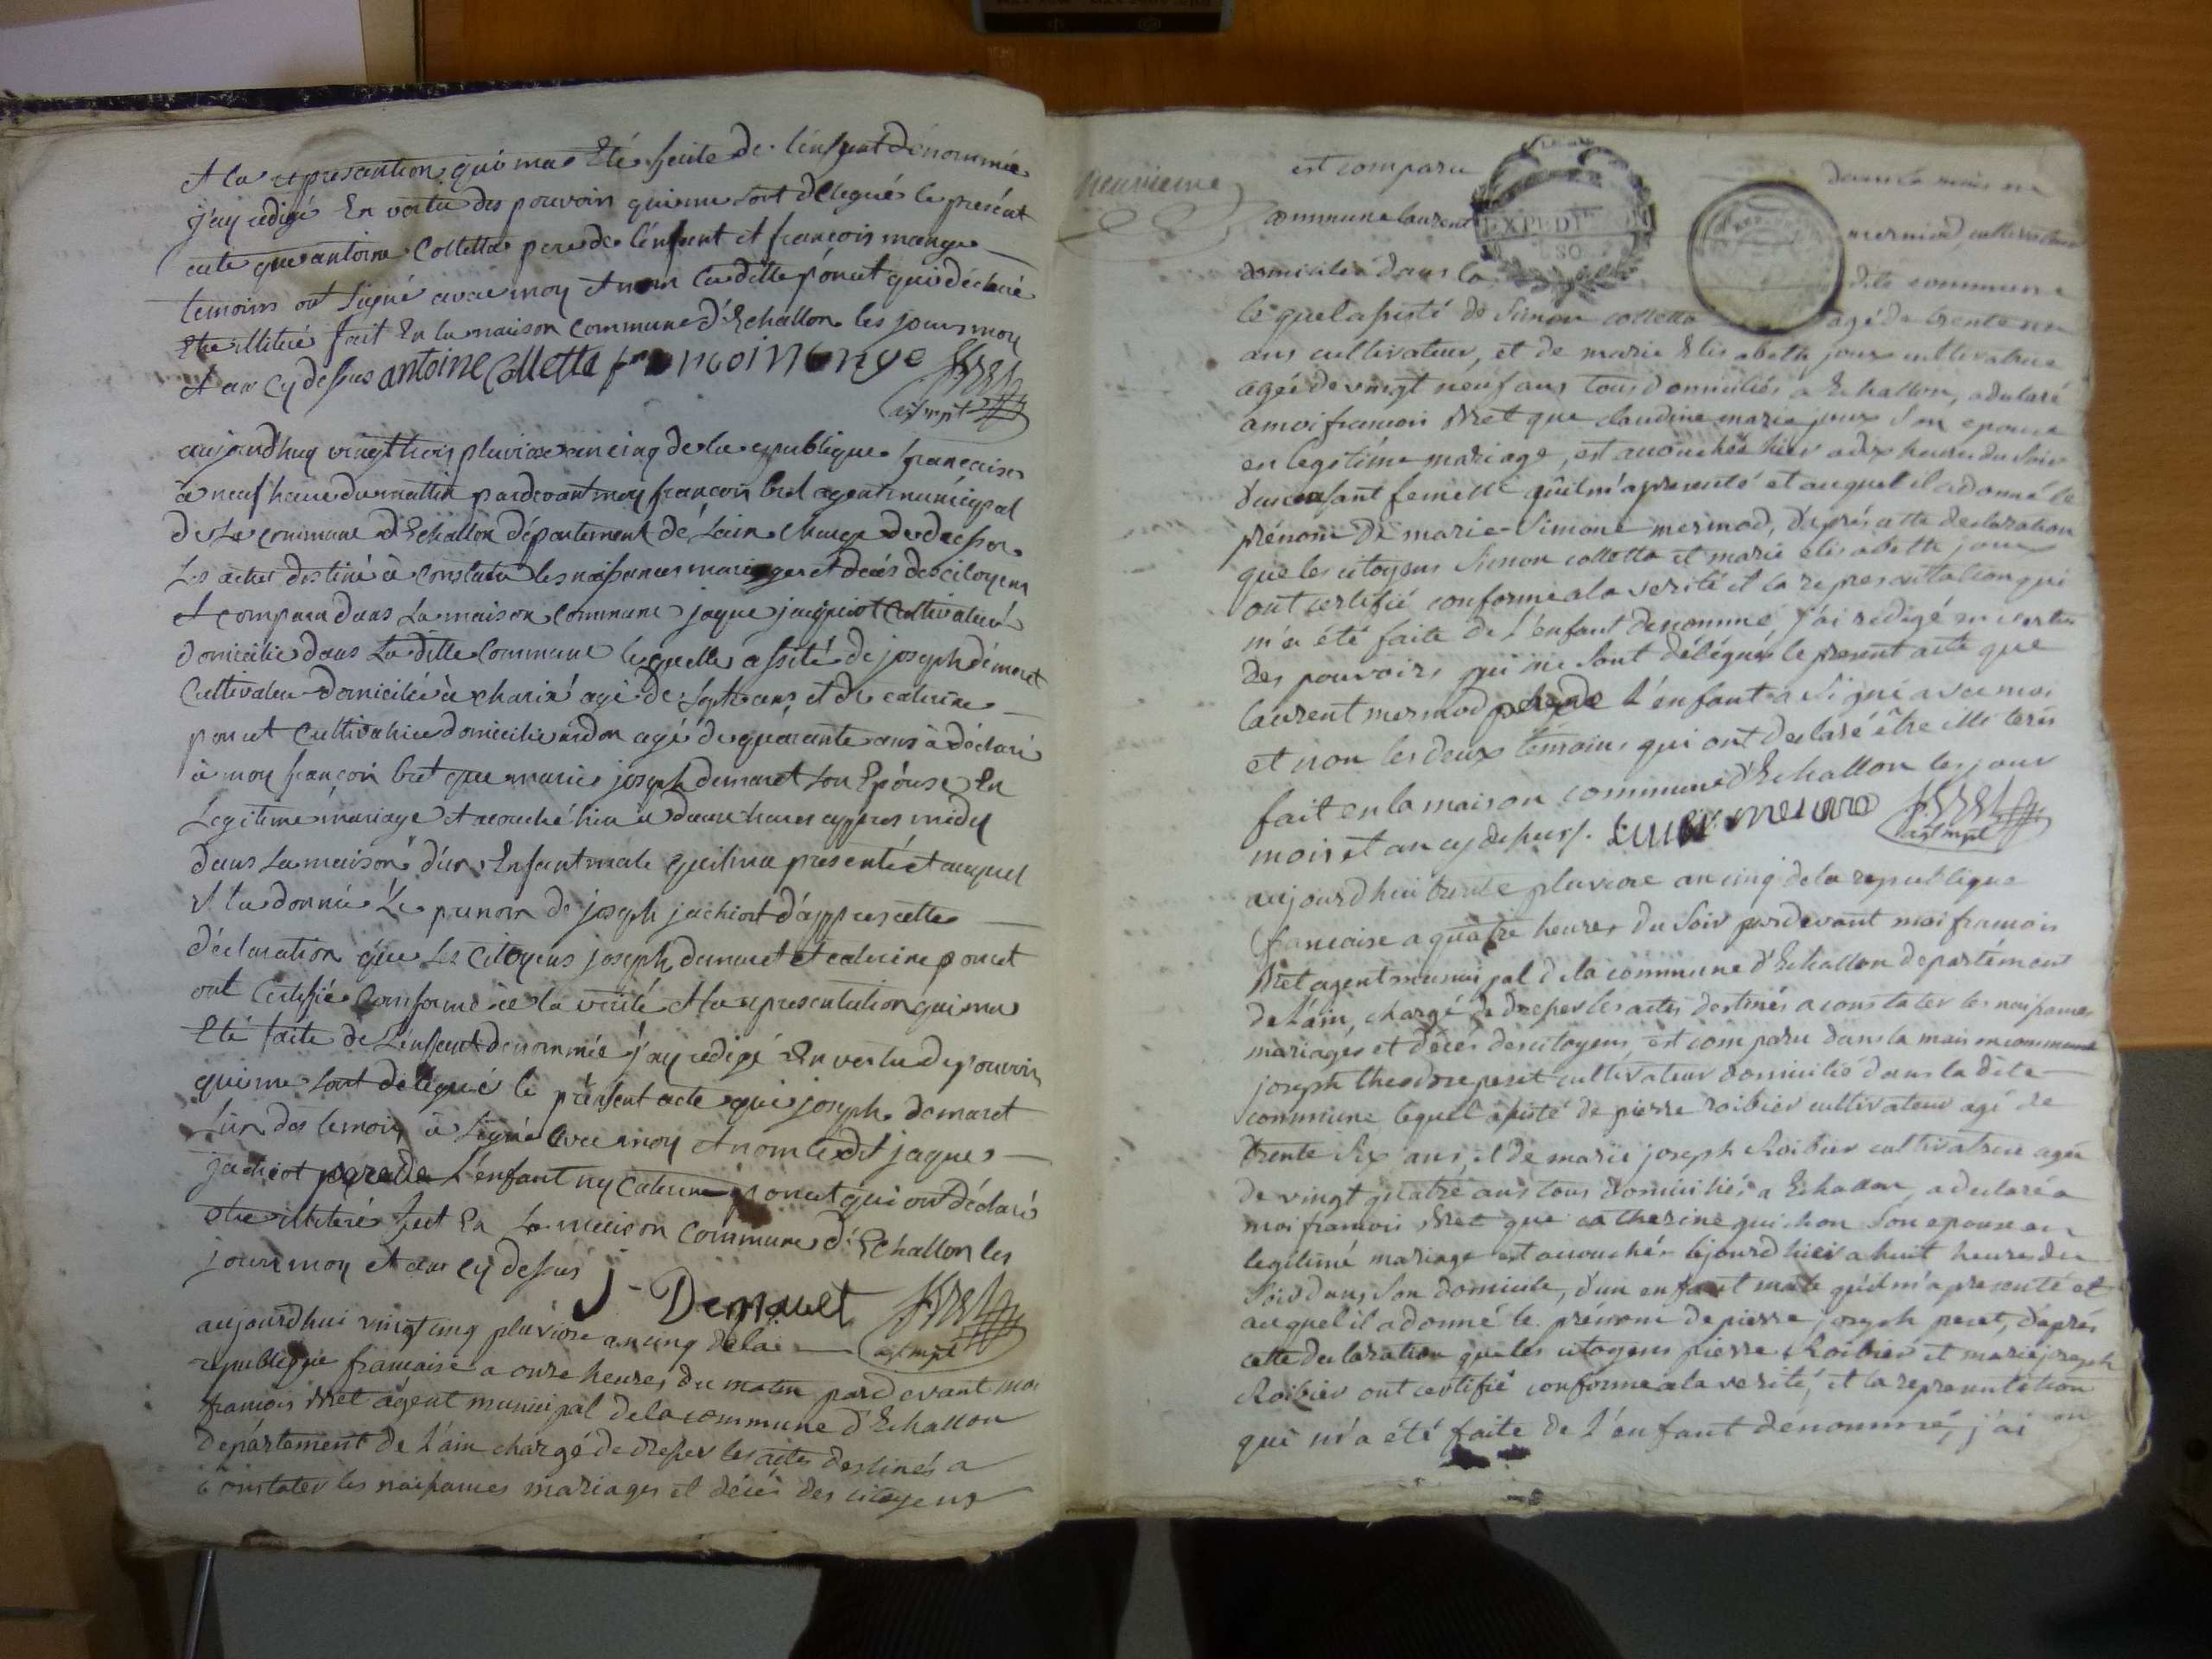 Et la represantion qui ma Eté faite de lénfant dénommée
j'ay redigé En vertu des pouvoir qui me sont délegué le présént
acte que antoine Colletta pere de lénfant et francois mange
temoins ont signé avec moy et non la ditte pónut qui déclaré
Etre illiteré fait En la maison commune d'Echallon les jour moy
et an cy dessus antoine Colletta francoi monge
agt mpl
aujourdhuy vingt trois pluviose an cinq de la republique francaise
à neuf heure du mattin pardevant moy francois bret agent municipal
de la commune d'Echallon département de lain charge de dresser
les actes destiné à constater les naissances mariages et décès des citoyens
Et comparu dans la maison commune jaque jaquiot Cultivateur
domicilie dans la ditte commune lequelle assisté de joseph démaret
Cultivateur domicilié à charix agé de sept ans et de caterine
poncet Cultivatrice domicilie ardon agé de quarante ans à déclaré
à moy françois bret que marie joseph demaret son Epóuse En
Legitime mariage Et acouché hier a deux heures appres midy
dans la maison d'ún Enfant male qu'il ma presenté et auquel
Il la donné Le prenom de joseph jachiot d'appres cette
déclaration que Les Citoyens joseph demaret et caterine poncet
ont Certifié Conforme à la verité Et la representation qui ma
Eté faite de Lénfant denommée j'ay redigé En vertu des pouvoir
qui me sont délegué le présent acte que joseph demaret
Lun des temoin à signé avec moy et nom ledit jaques
jachiot pere de L'enfant ny Caterine poncet qui ont déclaré
etre illiteré fait En La maison commune d'Echallon les
jour moy et an cy dessus J-Demaret
agt mpl
aujourdhui vingt cinq pluviose an cinq de la
republique francaise a onze heures du matin pardevant moi
francois Bret agent municipal de la commune d'Echallon
département de L'ain chargé de dresser les actes destinés a
constater les naissances mariages et décés des citoyens
neuvieme
est comparu dans la maison
EXPEDITION
commune laurent mermod, cultivateur
domicilié dans la dite commune
lequel assisté de Simon colletta agé de trente un
ans cultivateur, et de marie Elisabeth joux cultivatrice
agée de vingt neuf ans tous domiciliés a Echallon, a declaré
a moi francois Bret que claudine marie joux son epouse
en legitime mariage, est accouchée hier a dix heures du soir
d'un enfant femelle qu'il m'a presenté et auquel il a donné le
prénom de marie-Simone mermod, d'aprés cette declaration
que les citoyens Simon colletta et marie elisabeth joux
ont certifié conforme a la verité et la representation qui
m'a été faite de L'enfant denommé j'ai redigé en vertu
des pouvoirs qui me sont délégués le present acte que
laurent mermod pere de L'enfant a signé avec moi
et non les deux temoins qui ont declaré être illiterés
fait en la maison commune d'Echallon les jour
mois et an cy dessus.
agt mpl
aujourdhui trente pluviose an cinq de la republique
francaise a quatre heures du soir pardevant moi francois
Bret agent municipal de la commune d'Echallon departément
de L'ain, chargé de dresser les actes destinés a constater les naissances
mariages et décés des citoyens, est comparu dans la maison commune
joseph theodore peret cultivateur domicilié dans la dite
commune lequel assisté de pierre roibier cultivateur agé de
trente six ans, et de marie joseph Roibier cultivatrice agée
de vingt quatre ans tous domiciliés a Echallon, a declaré a
moi francois Bret que catherine guichon son epouse en
legitime mariage est accouchée a huit heures du
soir dans son domicile, d'un enfant male qu'il m'a presenté et
auquel il a donné le prénom de pierre joseph peret, d'aprés
cette declaration que les citoyens pierre Roibier et marie joseph
Roibier ont certifié conforme a la verité, et la representation
qui m'a été faite de L'enfant dénommé, j'ai